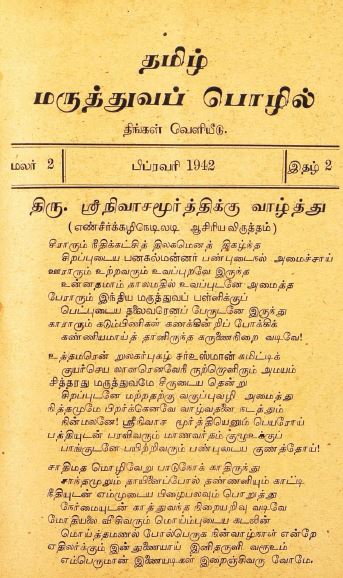 தமிழ்
மருத்துவப் பொழில்
திங்கள் வெளியீடு.
மலர் 2 பிப்ரவரி 1942 இதழ் 2
திரு. ஸ்ரீநிவாசமூர்த்திக்கு வாழ்த்து
(எண்சீர்க்கழிநெடிலடி ஆசிரிய விருத்தம்)
சீராரும் நீதிக்கட்சித் திலகமெனத் திகழ்ந்த
சிறப்புடைய பனகல்மன்னர் பண்புடைநல் அமைச்சாய்
ஊராரும் உற்றவரும் உவப்புறவே இருந்த
உன்னதமாம் காலமதில் உவப்புடனே அமைத்த
பேராரும் இந்திய மருத்துவப் பள்ளிக்குப்
பெட்புடைய தலைவரெனப் பேருடனே இருந்து
காராரும் கடும்பிணிகள் கணக்கின்றிப் போக்கிக்
கண்ணியமாய்த் தானிருந்த கருணைநிறை வடிவே!
உத்தமரென் றுலகர்புகழ் சர்உஸ்மான் கமிட்டிக்
குயர்செய லாளரெனவே நூற்றெளிரும் அமயம்
சித்தரது மருத்துவமே சிறுடைய தென்று
சிறப்புடனே மற்றதற்கு வகுப்புவழி அமைத்து
நித்தமுமே பிறர்க்கெனவே வாழ்வதனை நடத்தும்
நின்மலனே! ஸ்ரீநிவாச மூர்த்தியெனும் பெயரோய்
பத்தியுடன் பரவிவரும் மாணவர்தம் குழுஉக்குப்
பாங்குடனே பயிற்றிவரும் பண்புடைய குணத்தோய்!
சாதிமத மொழிவேறு பாடுநோக் காதிருந்து
சாந்தமுறும் தாயினைப்போல் தண்ணளியும் காட்டி
நீதியுடன் எம்முடைய பிழைபலவும் பொறுத்து
நேர்மையுடன் காத்துவந்த நிறையறிவு வடிவே
மோதியலை வீசிவரும் மொய்ம்புடைய கடலின்
மொய்த்தமணல் போல்பெருக நின்வாழ்நாள் என்றே
ஏதிலர்க்கும் இன்துணையாய் இனிதருளி வரூஉம்
எம்பெருமான் இணையடிகள் இறைஞ்சிவரு வோமே.